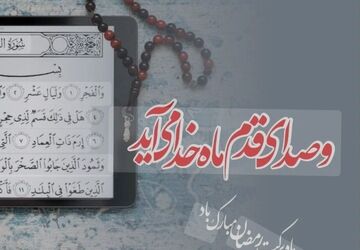 سُورَةُ
بِسْمِ
وَالْفَجْرِ ۝١ وَلَيَالٍ عَشْرٍ ۝٢
هَلْ فِي ذَٰلِكَ قَسَمٌ لِّذِي حِجْرٍ
إِرَمَ ذَاتِ الْعِمَادِ ۝٧ الَّتِي
وَثَمُودَ الَّذِينَ جَابُوا الصَّخْرَ بِالْوَادِ
الَّذِينَ طَغَوْا فِي الْبِلَادِ ۝١١
وصدای قدم ماه خدا می آید
رمضان مبارک باد